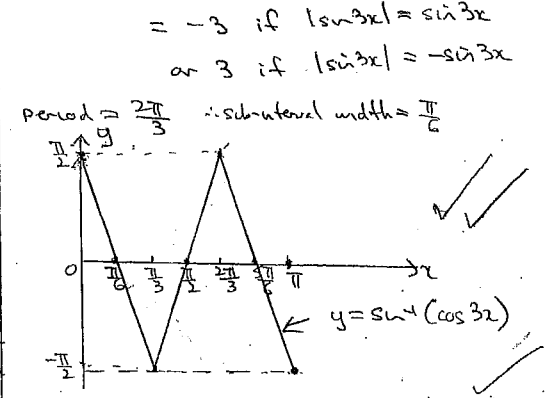 = -3 if |sin 3x| = sin 3x
or 3 if |sin 3x| = -sin 3x
period = 2π/3 ∴ sub-interval width = π/6
y
π/2
0 π/6 π/3 π/2 2π/3 5π/6 π x
y = sin⁻¹ (cos 3x)
-π/2